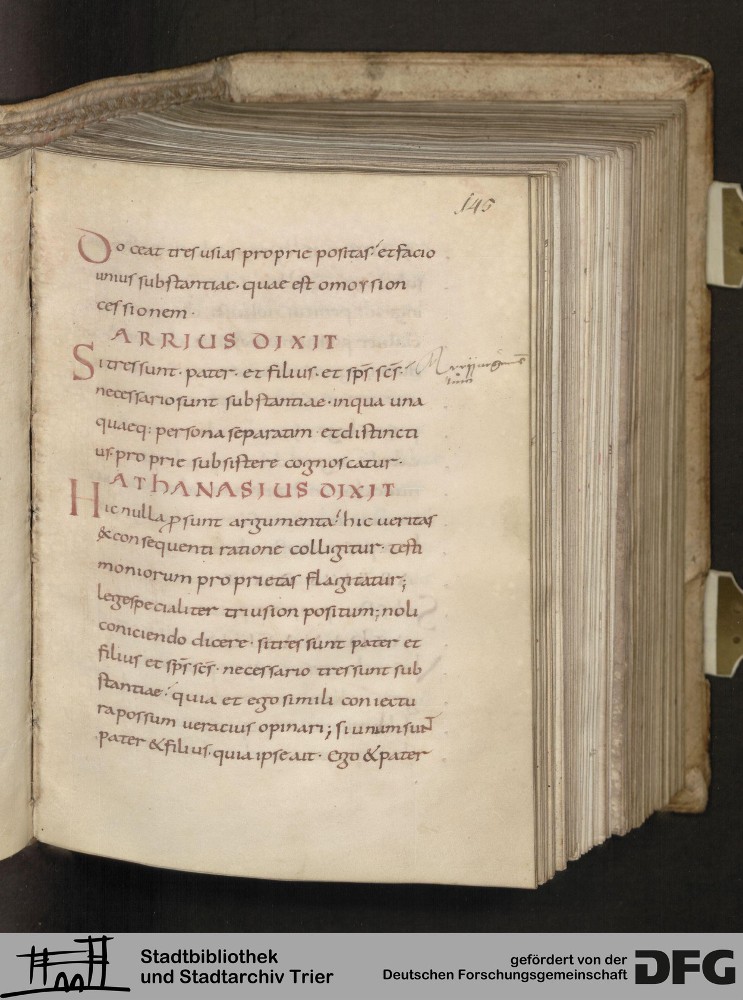 145
Doceat tres usias proprie positas et facio
unius substantiae. quae est omousion
cessionem.
ARRIUS DIXIT
Si tres sunt. pater. et filius. et sp̄s sc̄s.
necessario sunt substantiae. in qua una
quaeq: persona separatim et distincti
us. proprie subsistere cognoscatur.
ATHANASIUS DIXIT
Hic nulla p̱sunt argumenta. hic veritas
& consequenti ratione colligitur. testi
moniorum proprietas flagitatur;
lege specialiter triusion positum; noli
coniciendo dicere. si tres sunt pater et
filius et sp̄s sc̄s. necessario tres sunt sub
stantiae. quia et ego simili coniectu
ra possum veracius opinari; si unum sunt
pater & filius. quia ipse ait. ego & pater
Stadtbibliothek
und Stadtarchiv Trier
gefördert von der
Deutschen Forschungsgemeinschaft
DFG